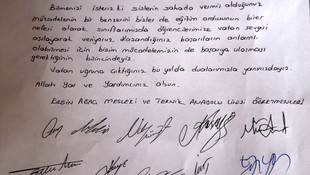 Bilmenizi isteriz ki sizlerin sahada vermiş olduğunuz
mücadelenin bir benzerini bizler de eğitim ordusunun birer
neferi olarak, sınıflarımızda öğrencilerimize vatan sevgisi
aşılayarak veriyoruz. Kazandığınız, başarıların anlamlı
olabilmesi için bizim mücadelemizin de başarıya ulaşması
gerektiğinin bilincindeyiz.
Vatan uğruna çıktığınız bu yolda dualarımızla yanınızdayız.
Allah Yar ve Yardımcınız olsun.
MESLEKİ VE TEKNİK ANADOLU LİSESİ ÖĞRETMENLERİ